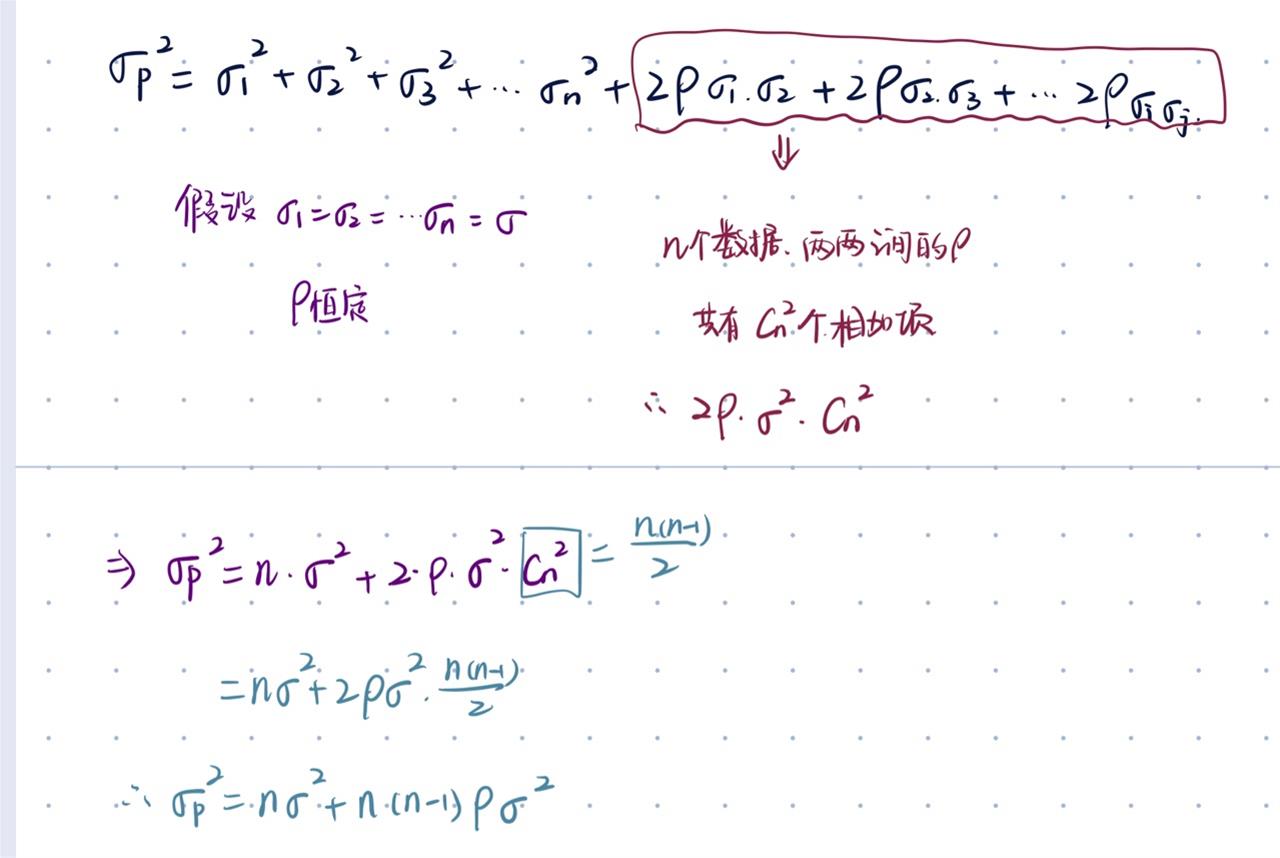 σp² = σ1² + σ2² + σ3² + ... σn² + 2ρσ1.σ2 + 2ρσ2.σ3 + ... 2ρσiσj.
⇓
假设 σ1=σ2=...σn=σ
n个数据.两两间的ρ
ρ恒定
共有 Cn²个相加项
∴ 2ρ.σ².Cn²
⇒ σp² = n·σ² + 2·ρ·σ²·Cn² = n(n-1)/2
= nσ²+2ρσ².n(n-1)/2
∴ σp² = nσ² + n(n-1)ρσ²